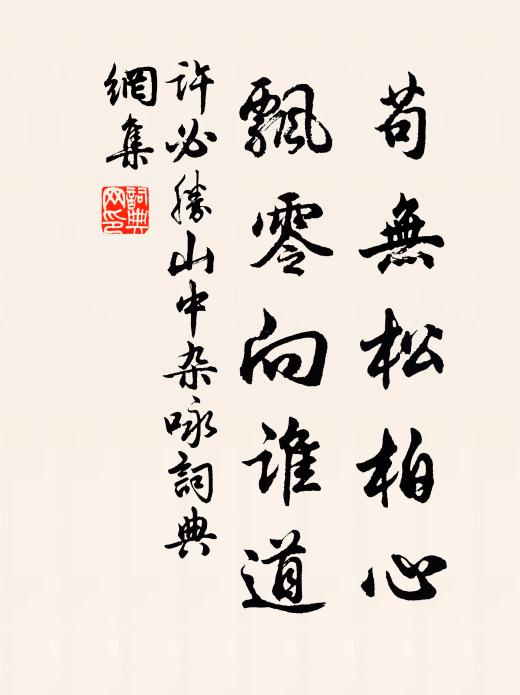 苟無松柏心
飄零向谁道
許必勝山中杂咏詞典
網集
詞典
网印